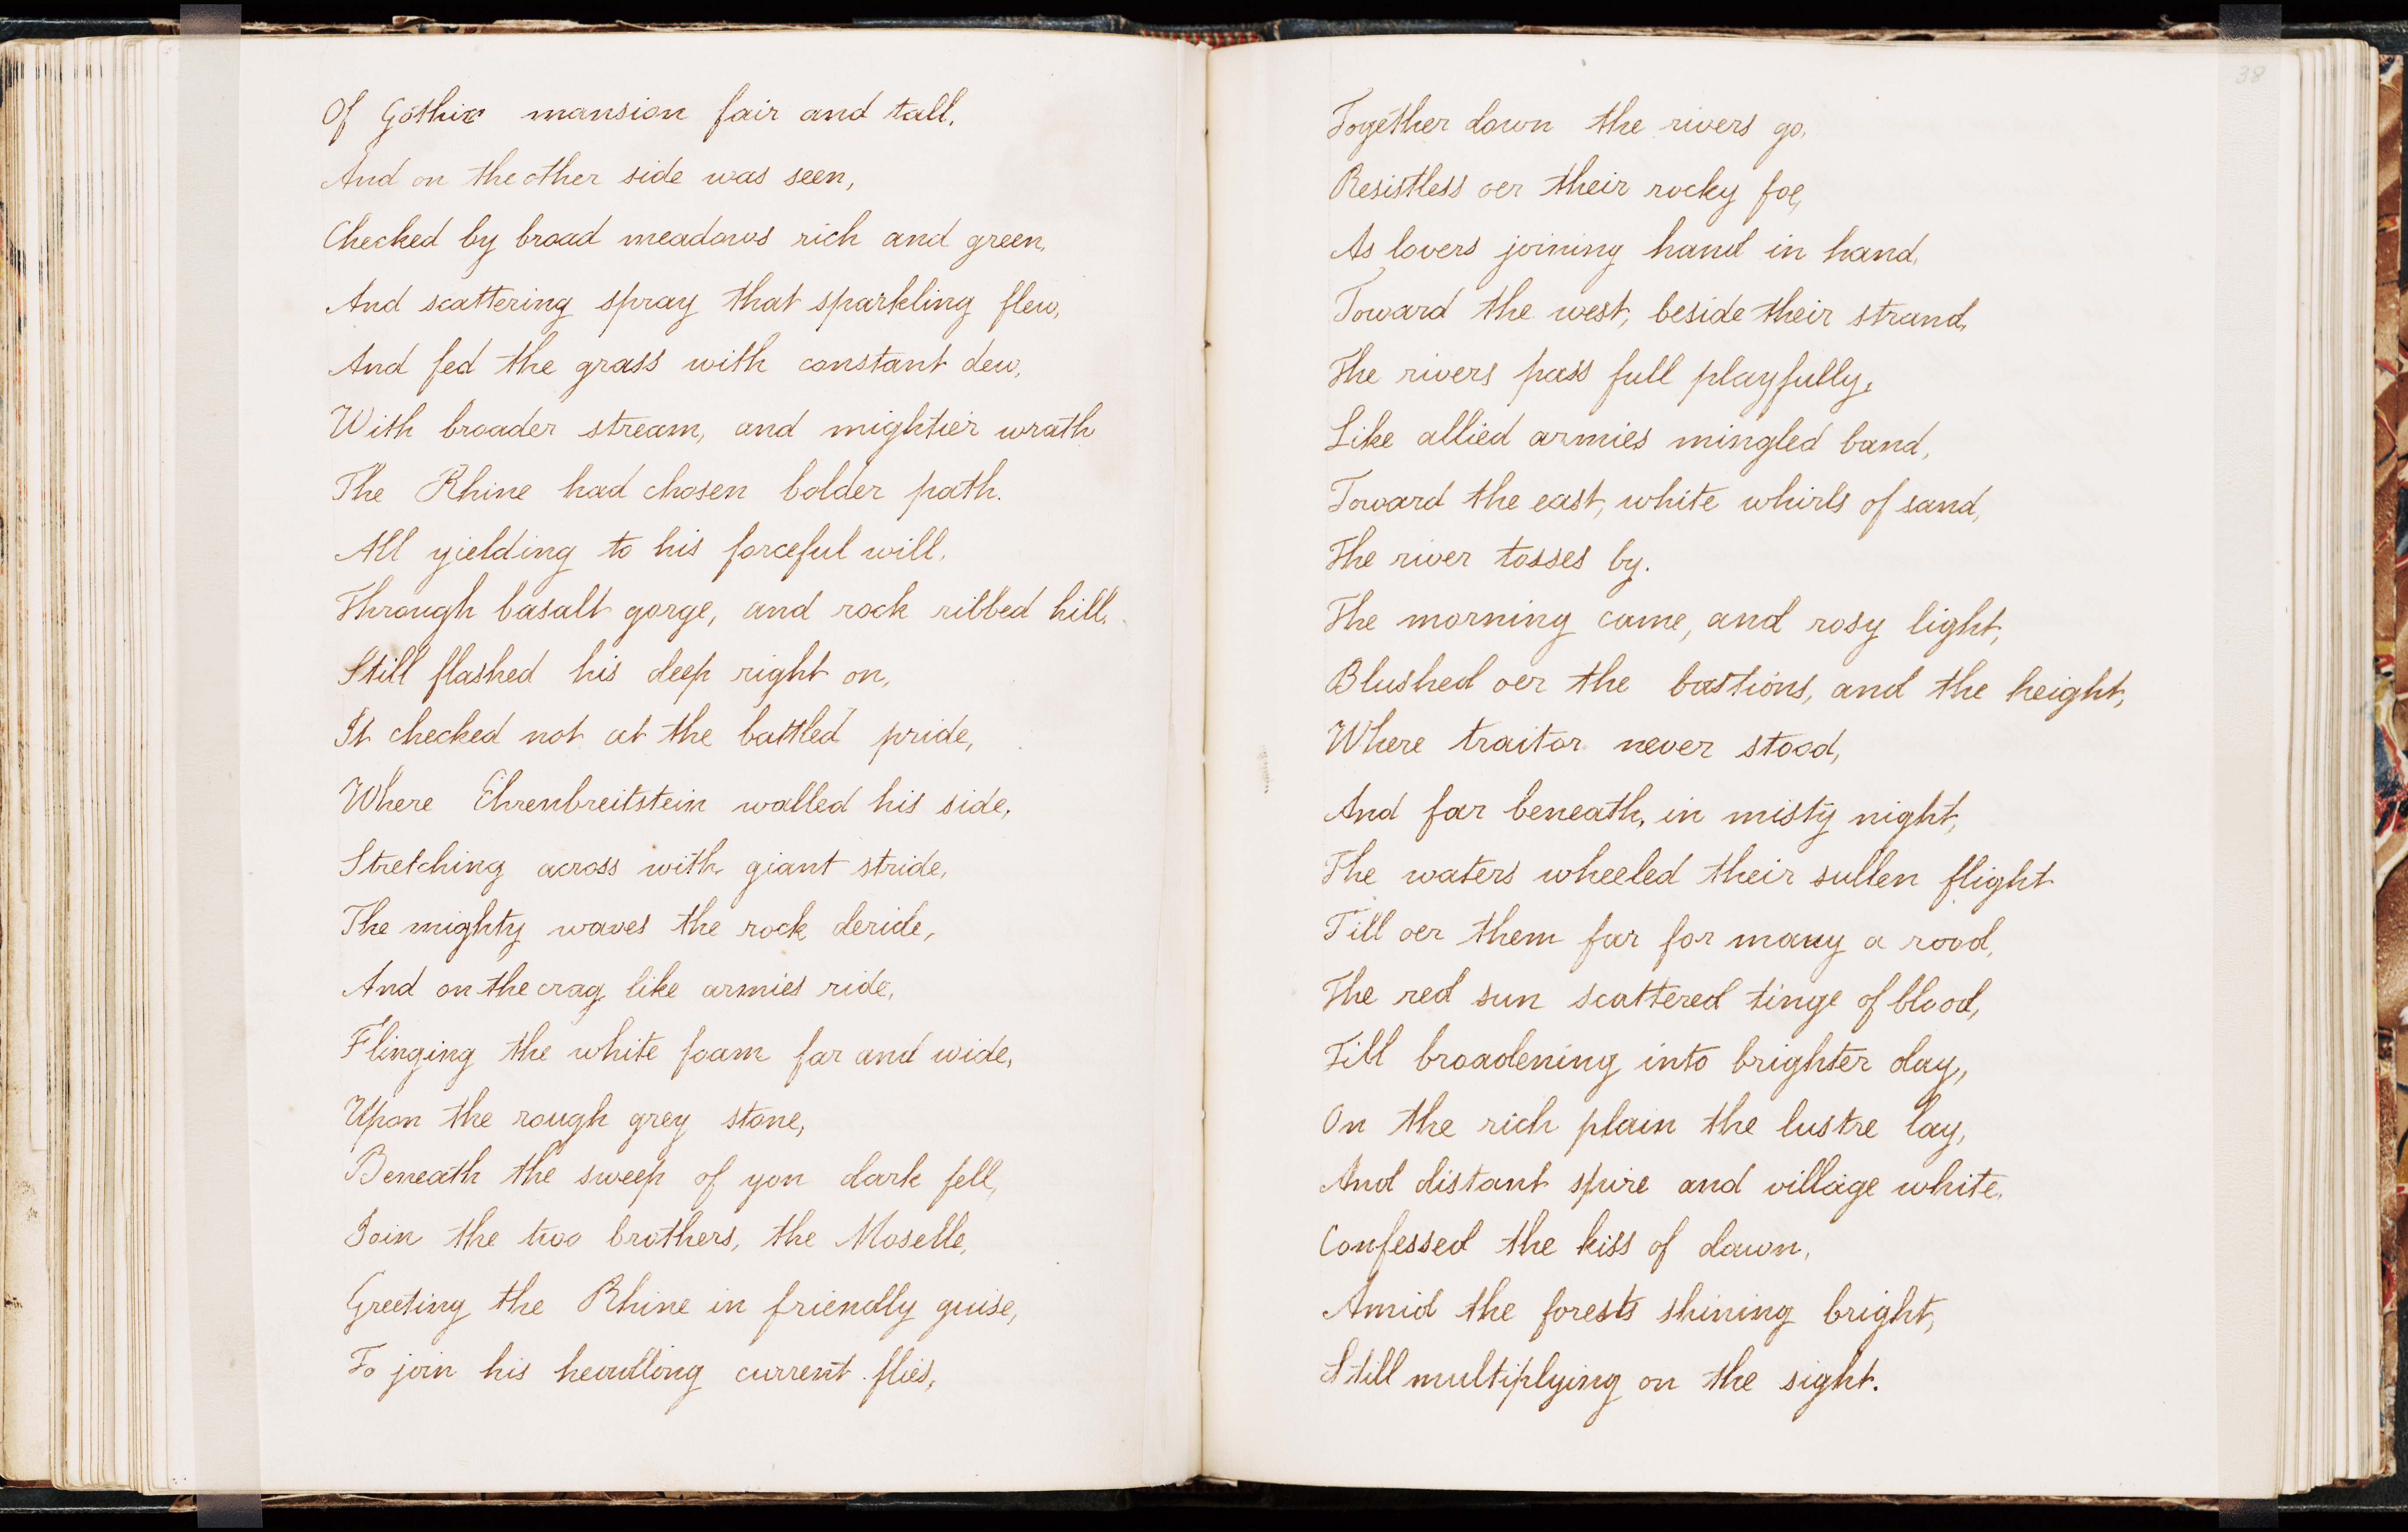 Of Gothic mansion fair and tall.
And on the other side was seen,
Checked by broad meadows rich and green,
And scattering spray that sparkling flew,
And fed the grass with constant dew,
With broader stream, and mightier wrath
The Rhine had chosen bolder path.
All yielding to his forceful will,
Through basalt gorge, and rock ribbed hill,
Still flashed his deep right on,
It checked not at the battled pride,
Where Ehrenbreitstein walled his side,
Stretching across with giant stride,
The mighty waves the rock deride,
And on the crag like armies ride,
Flinging the white foam far and wide,
Upon the rough grey stone,
Beneath the sweep of yon dark fell,
Join the two brothers, the Moselle,
Greeting the Rhine in friendly guise,
To join his headlong current flies,
38
Together down the rivers go,
Resistless oer their rocky foe,
As lovers joining hand in hand,
Toward the west, beside their strand,
The rivers pass full playfully,
Like allied armies mingled band,
Toward the east, white whirls of sand,
The river tosses by.
The morning came, and rosy light,
Blushed oer the bastions, and the height,
Where traitor never stood,
And far beneath, in misty night,
The waters wheeled their sullen flight
Till oer them far for many a rood,
The red sun scattered tinge of blood,
Till broadening into brighter day,
On the rich plain the lustre lay,
And distant spire and village white,
Confessed the kiss of dawn,
Amid the forests shining bright,
Still multiplying on the sight.